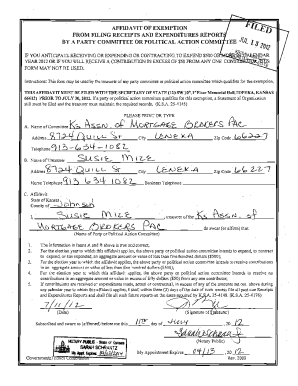 AFFIDAVIT OF EXEMPTION
FROM FILING RECEIPTS AND EXPENDITURES REPORTS
BY A PARTY COMMITTEE OR POLITICAL ACTION COMMITTEE
FILED
JUL 13 2012
IF YOU ANTICIPATE RECEIVING OR EXPENDING OR CONTRACTING TO EXPEND
YEAR 2012 OR IF YOU WILL RECEIVE A CONTRIBUTION IN EXCESS OF $50 FROM ANY ONE CONTRIBUTOR, THIS
FORM MAY NOT BE USED.
Instructions: This form may be used by the treasurer of any party committee or political action committee which qualifies for the exemption.
THIS AFFIDAVIT MUST BE FILED WITH THE SECRETARY OF STATE (120 SW 10th, 1st Floor Memorial Hall, TOPEKA, KANSAS
66612) PRIOR TO JULY 30, 2012. If a party or political action committee qualifies for this exemption, a Statement of Organization
will must be filed and the treasurer must maintain the required records. (K.S.A. 25-4145)
PLEASE PRINT OR TYPE
A. Name of Committee Ks Assn. of Mortgage Brokers Pac
Address 8724 Quill St City Lenexa Zip Code 66227
Telephone 913-634-1082
B. Name of Treasurer Susie Mize
Address 8724 Quill St City Lenexa Zip Code 66227
Home Telephone 913 634 1082 Business Telephone
C. Affidavit
State of Kansas
County of Johnson
I, Susie Mize, treasurer of the Ks Assn. of
Mortgage Brokers Pac do swear (or affirm) that
(Name of Party or Political Action Committee)
1. The information in items A and B above is true and correct.
2. For the election year in which the affidavit applies, the above party or political committee intends to expend, or contract
to expend, or has expended, an aggregate amount or value of less than five hundred dollars ($500).
3. For the election year in which the affidavit applies, the above party or political committee intends to receive contributions
in an aggregate amount or value of less than five hundred dollars ($500).
4. For the election year in which the affidavit applies, the above party or political committee intends to receive no
contributions in an aggregate amount or value in excess of fifty dollars ($50) from any one contributor.
5. If contributions are received or expenditures made,
7/11/12
(Date) (Signature of Treasurer)
Subscribed and sworn to (affirmed) before me this 11th day of July, 20 12
(Notary Public)
NOTARY PUBLIC - State of Kansas
My Appointment Expires 04/13, 20 12
Governmental Ethics Commission
Rev. 2003